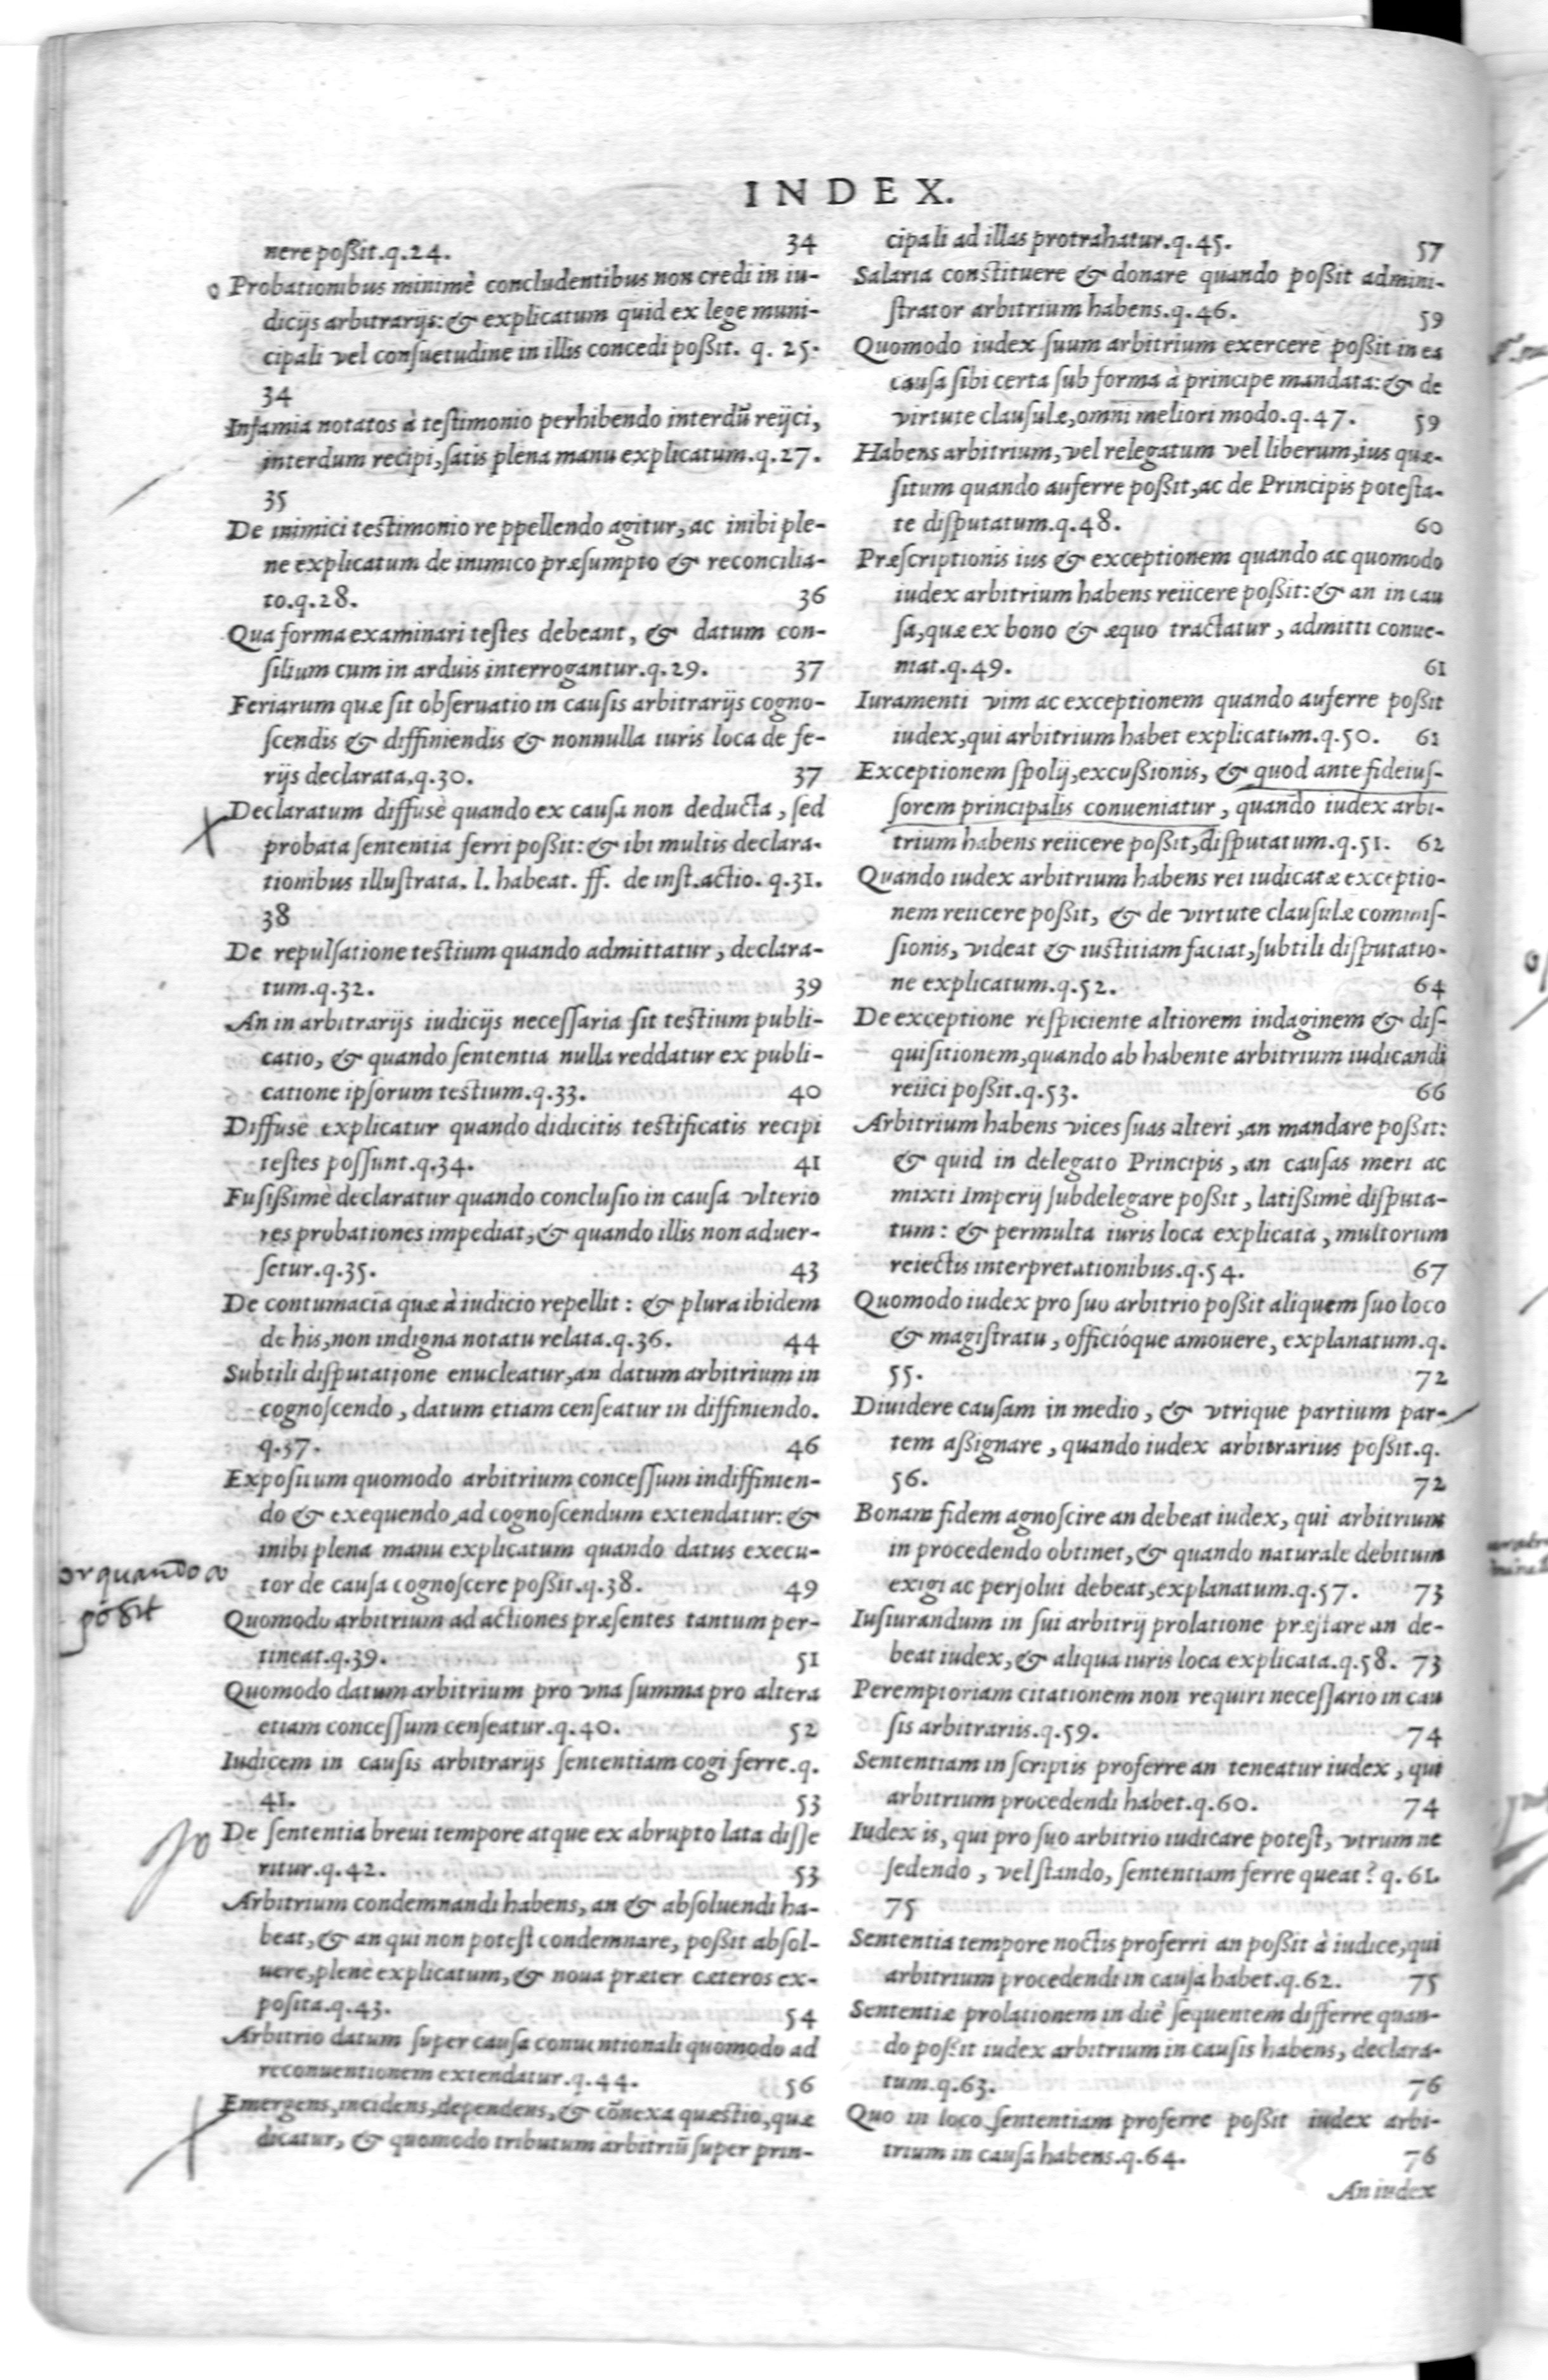 INDEX.
nere poßit.q.24. 34
Probationibus minimè concludentibus non credi in iu-
dicijs arbitrarijs:& explicatum quid ex lege muni-
cipali vel consuetudine in illis concedi poßit. q. 25.
34
Infamia notatos à testimonio perhibendo interdũ reijci,
interdum recipi,satis plena manu explicatum.q.27.
35
De inimici testimonio reppellendo agitur, ac inibi ple-
ne explicatum de inimico præsumpto & reconcilia-
to.q.28. 36
Qua forma examinari testes debeant, & datum con-
silium cum in arduis interrogantur.q.29. 37
Feriarum quæ sit obseruatio in causis arbitrarijs cogno-
scendis & diffiniendis & nonnulla iuris loca de fe-
rijs declarata.q.30. 37
Declaratum diffusè quando ex causa non deducta, sed
probata sententia ferri poßit:& ibi multis declara-
tionibus illustrata. l. habeat. ff. de inst.actio. q.31.
38
De repulsatione testium quando admittatur, declara-
tum.q.32. 39
An in arbitrarijs iudicijs necessaria sit testium publi-
catio, & quando sententia nulla reddatur ex publi-
catione ipsorum testium.q.33. 40
Diffusè explicatur quando didicitis testificatis recipi
testes possunt.q.34. 41
Fusißimè declaratur quando conclusio in causa vlterio
res probationes impediat,& quando illis non aduer-
setur.q.35. 43
De contumacia quæ à iudicio repellit: & plura ibidem
de his,non indigna notatu relata.q.36. 44
Subtili disputatione enucleatur,an datum arbitrium in
cognoscendo, datum etiam censeatur in diffiniendo.
q.37. 46
Expositum quomodo arbitrium concessum indiffinien-
do & exequendo,ad cognoscendum extendatur: &
inibi plena manu explicatum quando datus execu-
or quando co
tor de causa cognoscere poßit.q.38. 49
poßit
Quomodo arbitrium ad actiones præsentes tantum per-
tineat.q.39. 51
Quomodo datum arbitrium pro vna summa pro altera
etiam concessum censeatur.q.40. 52
Iudicem in causis arbitrarijs sententiam cogi ferre.q.
41. 53
De sententia breui tempore atque ex abrupto lata disse
ritur.q.42. 53
Arbitrium condemnandi habens, an & absoluendi ha-
beat,& an qui non potest condemnare, poßit absol-
uere,plenè explicatum,& noua præter cæteros ex-
posita.q.43. 54
Arbitrio datum super causa conuentionali quomodo ad
reconuentionem extendatur.q.44. 56
Emergens,incidens,dependens,& cõnexa quæstio,quæ
dicatur, & quomodo tributum arbitriũ super prin-
cipali ad illas protrahatur.q.45. 57
Salaria constituere & donare quando poßit admini-
strator arbitrium habens.q.46. 59
Quomodo iudex suum arbitrium exercere poßit in ea
causa sibi certa sub forma à principe mandata:& de
virtute clausulæ,omni meliori modo.q.47. 59
Habens arbitrium, vel relegatum vel liberum,ius quæ-
situm quando auferre poßit,ac de Principis potesta-
te disputatum.q.48. 60
Præscriptionis ius & exceptionem quando ac quomodo
iudex arbitrium habens reiicere poßit:& an in cau
sa,quæ ex bono & æquo tractatur, admitti conue-
niat.q.49. 61
Iuramenti vim ac exceptionem quando auferre poßit
iudex,qui arbitrium habet explicatum.q.50. 61
Exceptionem spolij,excußionis, & quod ante fideius-
sorem principalis conueniatur, quando iudex arbi-
trium habens reiicere poßit,disputatum.q.51. 62
Quando iudex arbitrium habens rei iudicatæ exceptio-
nem reiicere poßit, & de virtute clausulæ commis-
sionis, videat & iustitiam faciat,subtili disputatio-
ne explicatum.q.52. 64
De exceptione respiciente altiorem indaginem & dis-
quisitionem,quando ab habente arbitrium iudicandi
reiici poßit.q.53. 66
Arbitrium habens vices suas alteri, an mandare poßit:
& quid in delegato Principis, an causas meri ac
mixti Imperij subdelegare poßit, latißimè disputa-
tum: & permulta iuris loca explicata, multorum
reiectis interpretationibus.q.54. 67
Quomodo iudex pro suo arbitrio poßit aliquem suo loco
& magistratu, officióque amouere, explanatum.q.
55. 72
Diuidere causam in medio, & vtrique partium par-
tem aßignare, quando iudex arbitrarius poßit.q.
56. 72
Bonam fidem agnoscire an debeat iudex, qui arbitrium
in procedendo obtinet,& quando naturale debitum
exigi ac persolui debeat,explanatum.q.57. 73
Iusiurandum in sui arbitrij prolatione præstare an de-
beat iudex,& aliqua iuris loca explicata.q.58. 73
Peremptoriam citationem non requiri necessario in cau
sis arbitrariis.q.59. 74
Sententiam in scriptis proferre an teneatur iudex, qui
arbitrium procedendi habet.q.60. 74
Iudex is, qui pro suo arbitrio iudicare potest, vtrum ne
sedendo, vel stando, sententiam ferre queat? q.61.
75
Sententia tempore noctis proferri an poßit à iudice,qui
arbitrium procedendi in causa habet.q.62. 75
Sententiæ prolationem in diẽ sequentem differre quan-
do poßit iudex arbitrium in causis habens, declara-
tum.q.63. 76
Quo in loco sententiam proferre poßit iudex arbi-
trium in causa habens.q.64. 76
An iudex